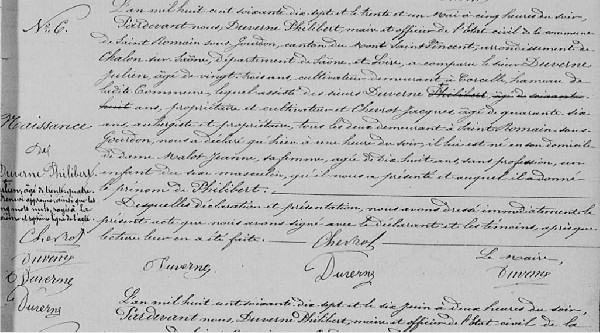 No 6.
Naissance
de
Duverne Philibert
Chevrot
Duverne
Duverne
Duverne
L'an mil huit cent soixante dix-sept et le trente et un Mai à cinq heures du soir,
Pardevant nous, Duverne Philibert, maire et officier de l'état civil de la commune
de Saint Romain sous Gourdon, canton du Mont Saint Vincent, arrondissement de
Chalon sur Saône, Département de Saône et Loire, a comparu le sieur Duverne
Julien, âgé de vingt trois ans cultivateur demeurant à hameau de
ladite Commune, lequel assisté des sieurs Duverne Philibert, âgé de soixante
huit ans, propriétaire et cultivateur et Chevrot Jacques âgé de quarante six
ans, aubergiste et propriétaire, tous les deux demeurant à Saint Romain sous
Gourdon, nous a déclaré qu'hier à une heure du soir, il lui est né en son domicile
de dame Malot Jeanne, sa femme, âgée de dix huit ans, sans profession, un
enfant du sexe masculin, qu'il nous a présenté et auquel il a donné
le prénom de Philibert.
Desquelles déclaration et présentation, nous avons dressé immédiatement le
présent acte que nous avons signé avec le déclarant et les témoins, après que
lecture leur en a été faite.
Chevrot
Le Maire,
Duverne
Duverne
Duverne
L'an mil huit cent soixante dix-sept et le six juin à deux heures du soir,
Pardevant nous, Duverne Philibert, maire et officier de l'état civil de la